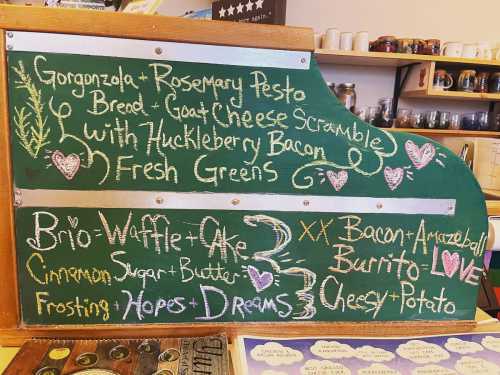 Gorgonzola + Rosemary Pesto
Bread + Goat Cheese Scramble
with Huckleberry Bacon
Fresh Greens
Brio = Waffle + Cake
Cinnamon Sugar + Butter
Frosting + Hopes + Dreams
XX Bacon + Amazeball
Burrito = LOVE
Cheesy + Potato